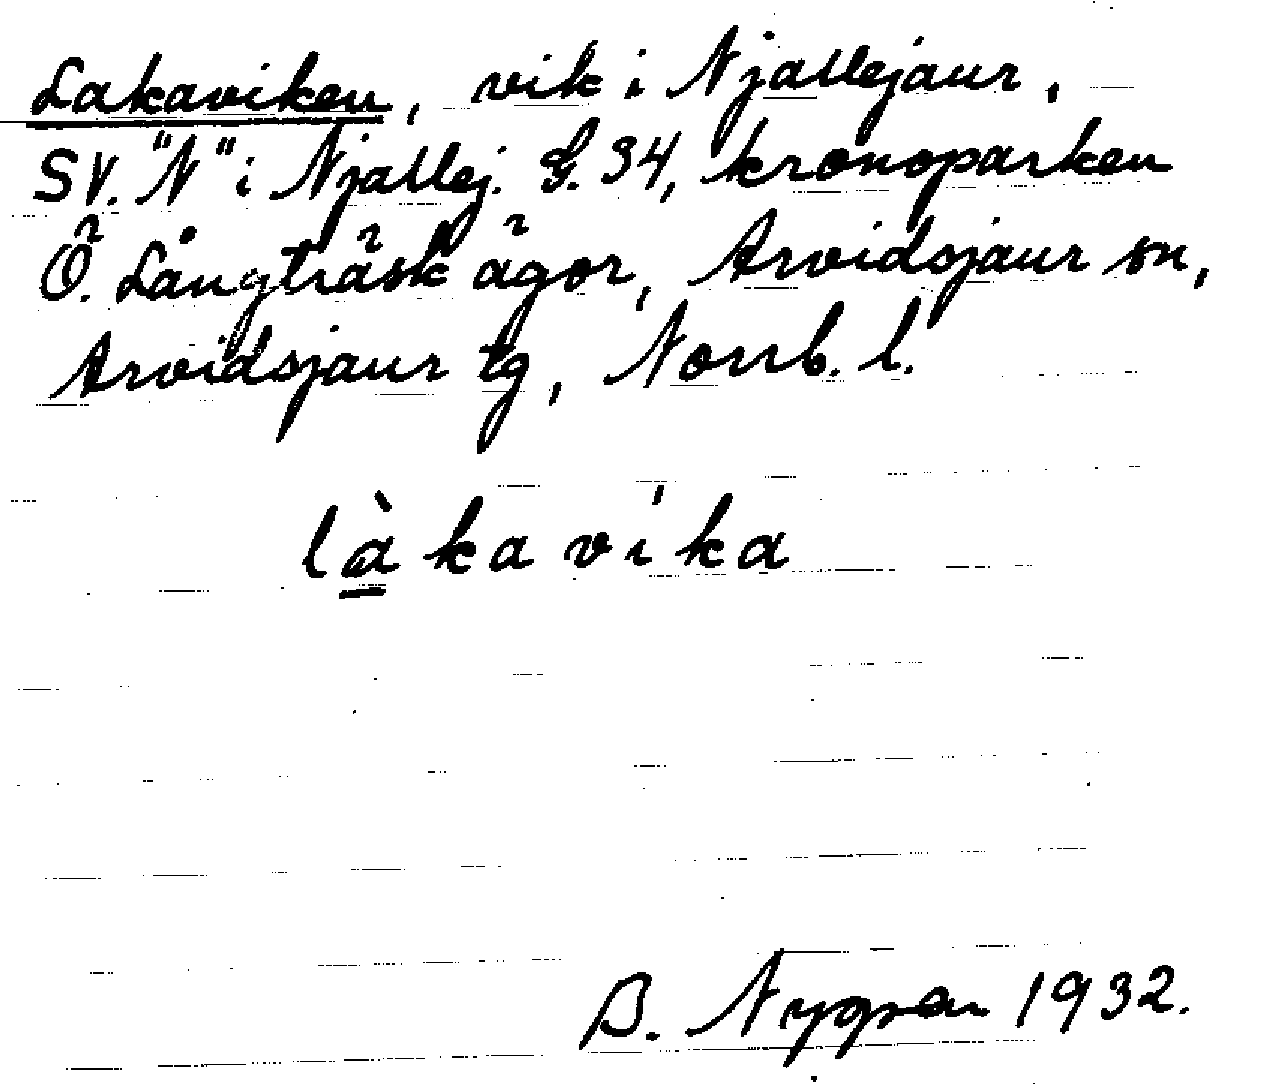 Lakaviken, vik i Njallejaur,
SV. "N" i Njallej. G. 34, kronoparken
Ö. Långträsk ägor, Arvidsjaur sn,
Arvidsjaur tg, Norrb. l.
là ka vi ka
B. Nygren 1932.